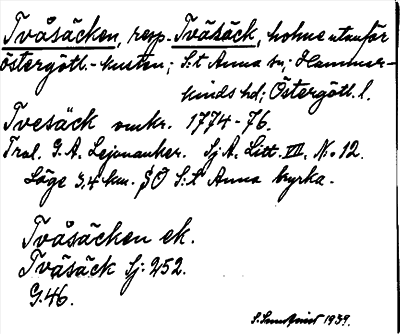 Tvåsäcken, resp. Tväsäck, holme utanför
östergötl.-kusten; S:t Anna sn; Hammar-
kinds hd; Östergötl. l.
Tvesäck omkr. 1774-76.
Trol. G. A. Lejonanker. Sj A. Litt. VII, N:o 12.
Läge 3,4 km. SO S:t Anna kyrka.
Tvåsäcken ek.
Tväsäck Sj: 252.
G.46.
1939.